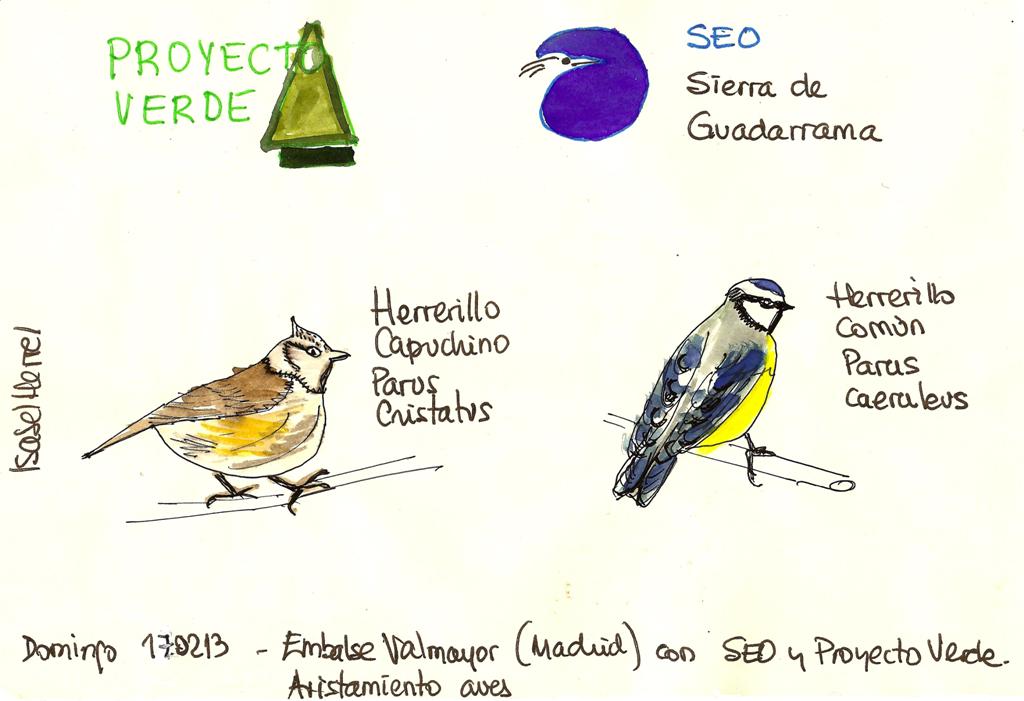 PROYECTO
VERDE
SEO
Sierra de
Guadarrama
Herrerillo
Capuchino
Parus
Cristatus
Herrerillo
Común
Parus
Caeruleus
Isabel Herrel
Domingo 170213 - Embalse Valmayor (Madrid) con SEO y Proyecto Verde.
Avistamiento aves